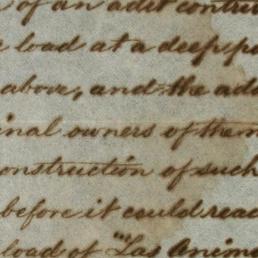 of an adit
load at a deep
above, and the ad
inal owners of the m
onstruction of such
before it could reac
load of "Las Anim